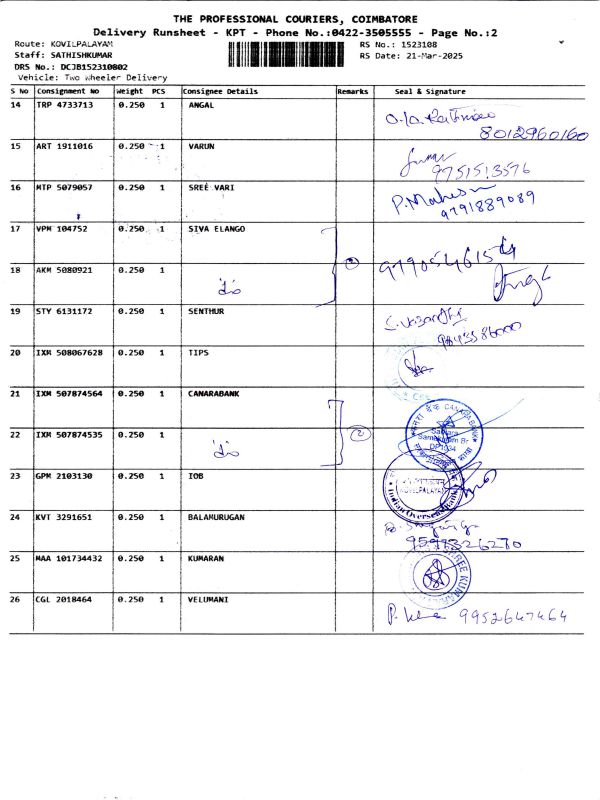 THE PROFESSIONAL COURIERS, COIMBATORE
Delivery Runsheet - KPT - Phone No.:0422-3505555 - Page No.:2
Route: KOVILPALAYAM RS No.: 1523108
Staff: SATHISHKUMAR RS Date: 21-Mar-2025
DRS No.: DCJB152310802
Vehicle: Two Wheeler Delivery
S No Consignment No Weight PCS Consignee Details Remarks Seal & Signature
14 TRP 4733713 0.250 1 ANGAL
8012960160
15 ART 1911016 0.250 1 VARUN
9751513576
16 MTP 5079057 0.250 1 SREE VARI P. Mahesh
9791889089
17 VPM 104752 0.250 1 SIVA ELANGO
18 AKM 5080921 0.250 1 2
19 STY 6131172 0.250 1 SENTHUR
20 IXM 508067628 0.250 1 TIPS
21 IXM 507874564 0.250 1 CANARABANK
CANARA BANK
22 IXM 507874535 0.250 1 2
DP1034
23 GPM 2103130 0.250 1 IOB
KOVILPALAYAM
Indian Overseas Bank
24 KVT 3291651 0.250 1 BALAMURUGAN
25 MAA 101734432 0.250 1 KUMARAN
26 CGL 2018464 0.250 1 VELUMANI
9952647464